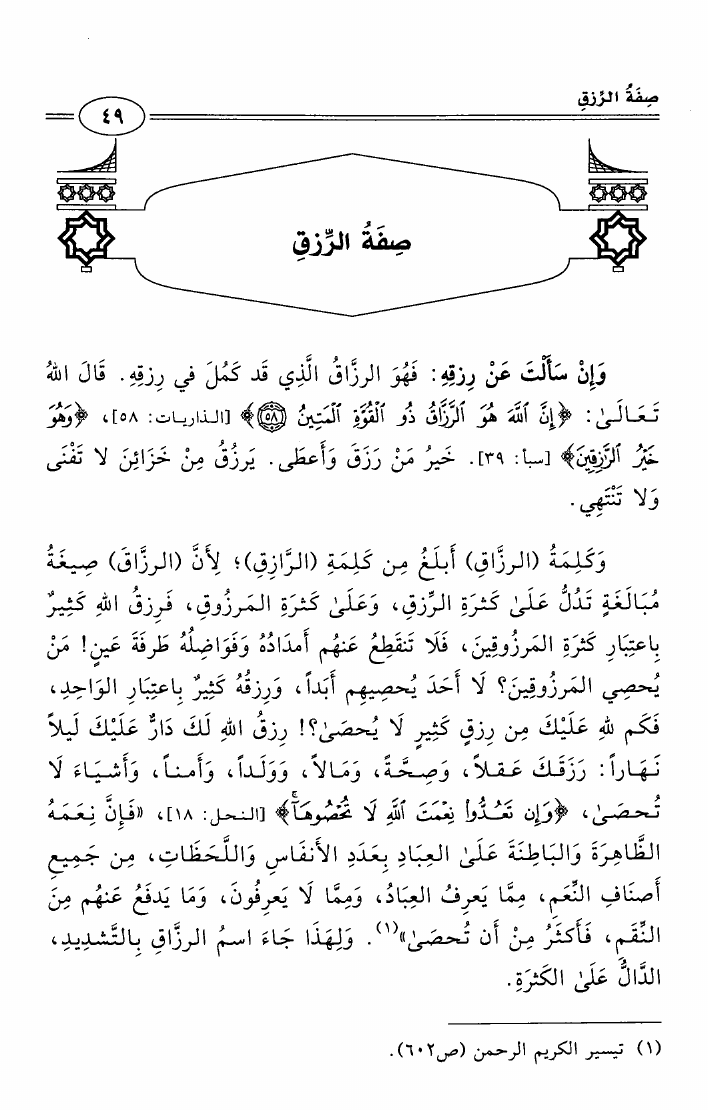 صِفَةُ الرِّزقِ
٤٩
صِفَةُ الرِّزقِ
وَإِنْ سَأَلْتَ عَنْ رِزقِهِ: فَهُوَ الرزَّاقُ الَّذِي قَد كَمُلَ في رِزقِهِ. قَالَ اللهُ
تَعَالَىٰ: ﴿إِنَّ ٱللَّهَ هُوَ ٱلرَّزَّاقُ ذُو ٱلْقُوَّةِ ٱلْمَتِينُ ۝٥٨﴾ [الذاريات: ٥٨]، ﴿وَهُوَ
خَيْرُ ٱلرَّٰزِقِينَ﴾ [سبأ: ٣٩]. خَيرُ مَنْ رَزَقَ وَأَعطَى. يَرزُقُ مِنْ خَزَائِنَ لَا تَفْنَى
وَلا تَنْتَهِي.
وَكَلِمَةُ (الرزَّاقِ) أَبلَغُ مِن كَلِمَةِ (الرَّازِقِ)؛ لِأَنَّ (الرزَّاقَ) صِيغَةُ
مُبَالَغَةٍ تَدُلُّ عَلَىٰ كَثرَةِ الرِّزقِ، وَعَلَىٰ كَثرَةِ المَرزُوقِ، فَرِزقُ اللهِ كَثِيرٌ
بِاعتِبَارِ كَثرَةِ المَرزُوقِينَ، فَلَا تَنقَطِعُ عَنهُم أَمدَادُهُ وَفَوَاضِلُهُ طَرفَةَ عَينٍ! مَنْ
يُحصِي المَرزُوقِينَ؟ لَا أَحَدَ يُحصِيهِم أَبَداً، وَرِزقُهُ كَثِيرٌ بِاعتِبَارِ الوَاحِدِ،
فَكَم للهِ عَلَيْكَ مِن رِزقٍ كَثِيرٍ لَا يُحصَىٰ؟! رِزقُ اللهِ لَكَ دَارٌّ عَلَيْكَ لَيلاً
نَهَاراً: رَزَقَكَ عَقلاً، وَصِحَّةً، وَمَالاً، وَوَلَداً، وَأَمناً، وَأَشيَاءَ لَا
تُحصَىٰ، ﴿وَإِن تَعُدُّواْ نِعْمَتَ ٱللَّهِ لَا تُحْصُوهَآ﴾ [النحل: ١٨]، «فَإِنَّ نِعَمَهُ
الظَّاهِرَةَ وَالبَاطِنَةَ عَلَىٰ العِبَادِ بِعَدَدِ الأَنفَاسِ وَاللَّحَظَاتِ، مِن جَمِيعِ
أَصنَافِ النِّعَمِ، مِمَّا يَعرِفُ العِبَادُ، وَمِمَّا لَا يَعرِفُونَ، وَمَا يَدفَعُ عَنهُم مِنَ
النِّقَمِ، فَأَكثَرُ مِنْ أَن تُحصَىٰ»(١). وَلِهَذَا جَاءَ اسمُ الرزَّاقِ بِالتَّشدِيدِ،
الدَّالُّ عَلَىٰ الكَثرَةِ.
(١) تيسير الكريم الرحمن (ص٦٠٢).